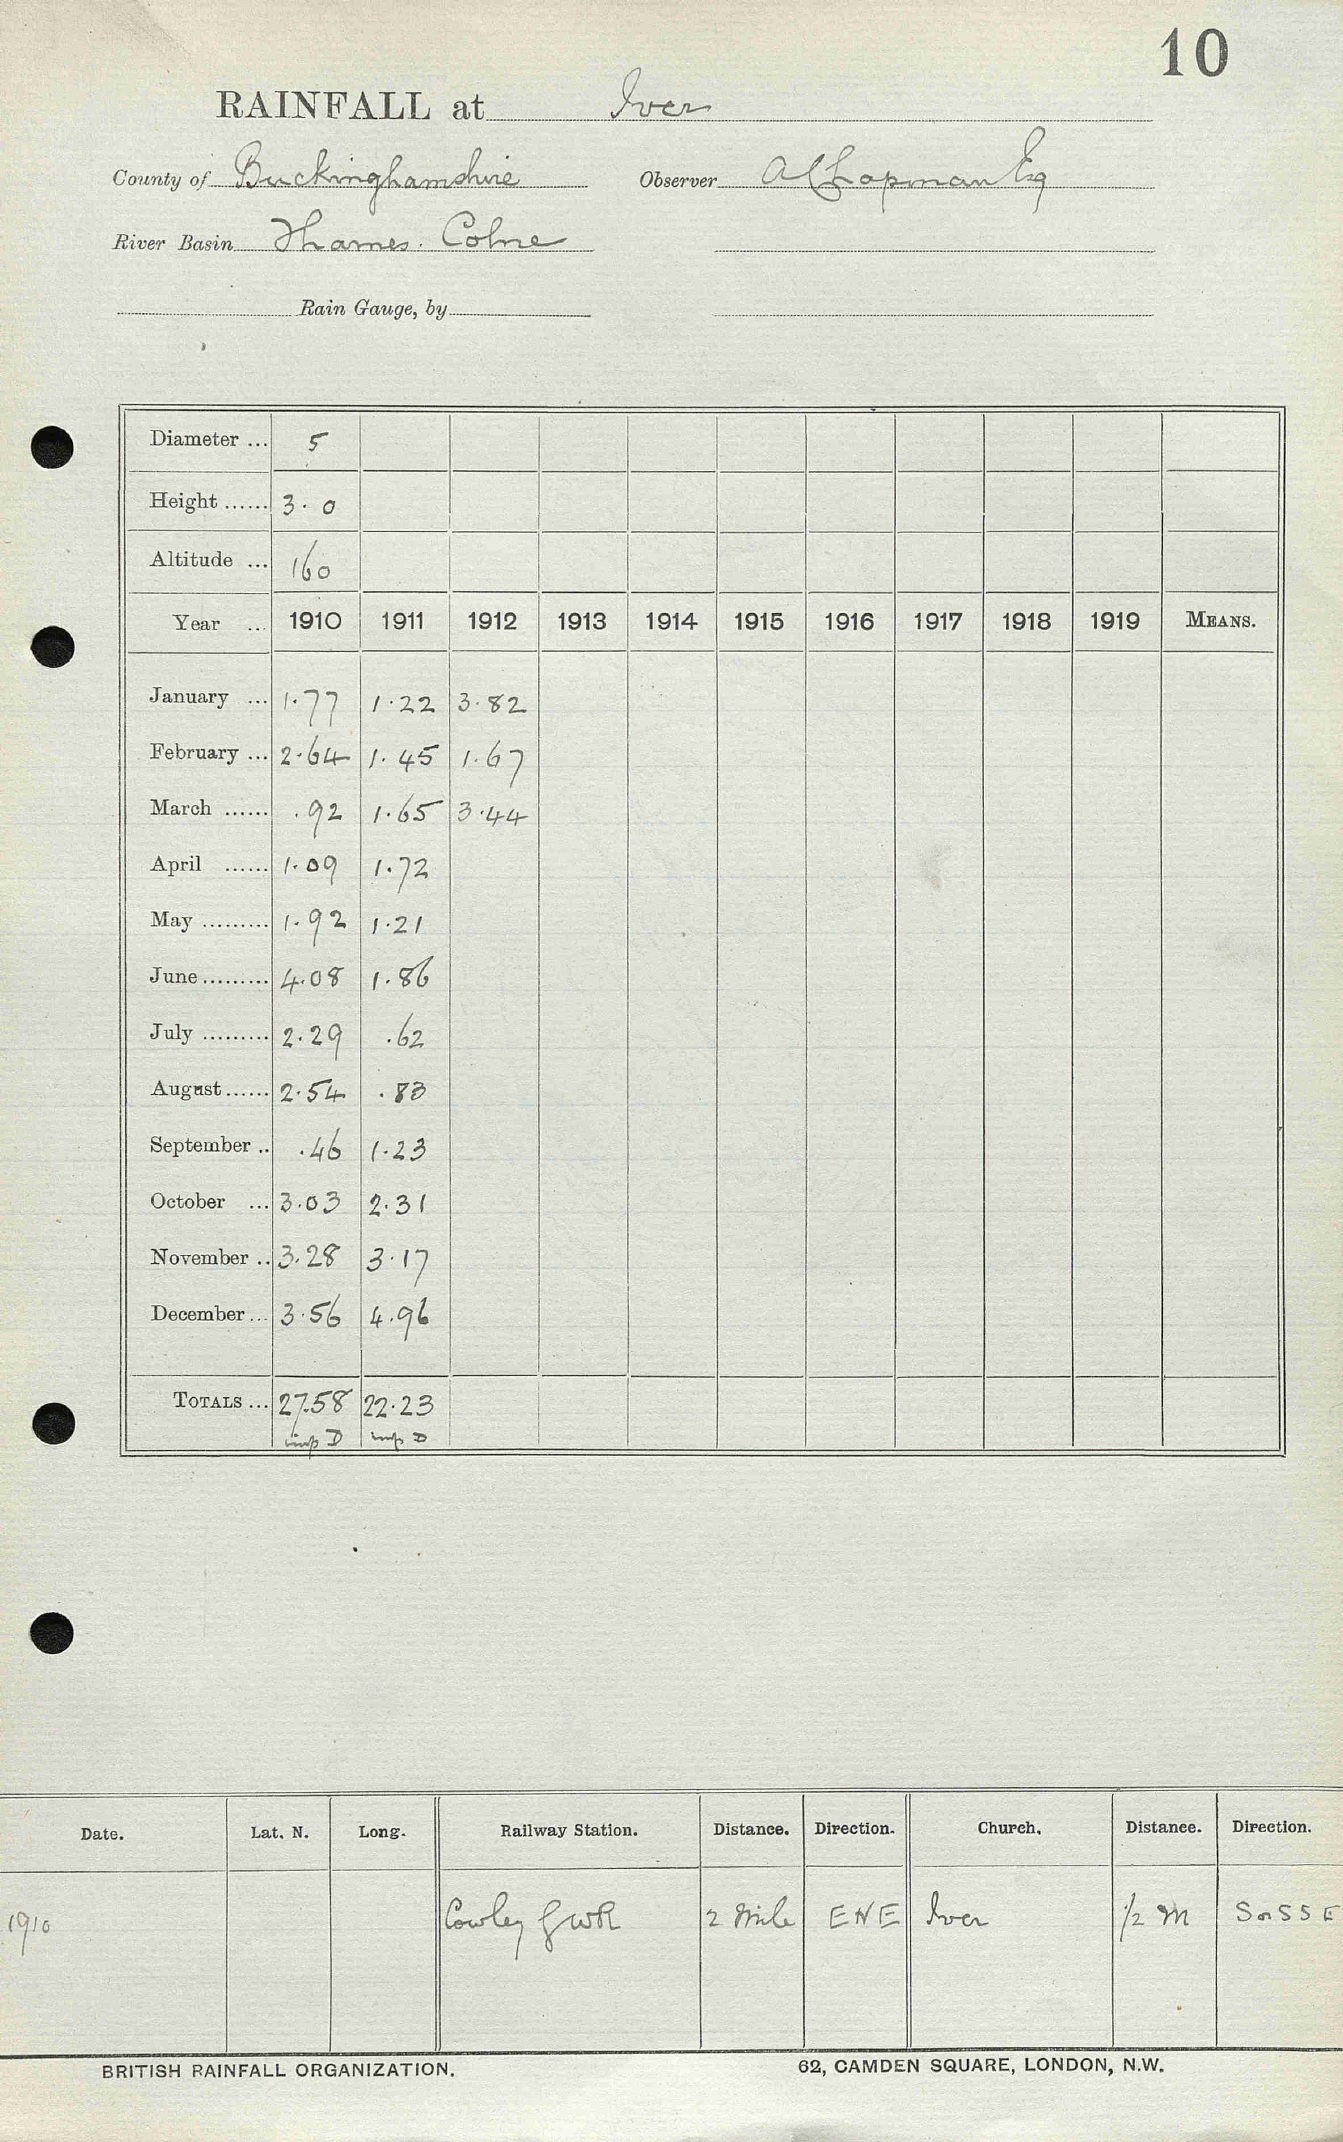 10
RAINFALL at Iver
County of Buckinghamshire Observer A Chapman Esq
River Basin Thames. Colne
Rain Gauge, by
Diameter ... 5
Height ...... 3. 0
Altitude ... 160
Year ... 1910 1911 1912 1913 1914 1915 1916 1917 1918 1919 MEANS.
January ... 1.77 1.22 3.82
February ... 2.64 1.45 1.67
March ...... .92 1.65 3.44
April ...... 1.09 1.72
May ......... 1.92 1.21
June ......... 4.08 1.86
July ......... 2.29 .62
August ...... 2.54 .83
September .. .46 1.23
October ... 3.03 2.31
November .. 3.28 3.17
December ... 3.56 4.96
TOTALS ... 27.58 22.23
imp D imp D
Date. Lat. N. Long. Railway Station. Distance. Direction. Church. Distance. Direction.
1910 Cowley GWR 2 Mile ENE Iver 1/2 M S or SSE
BRITISH RAINFALL ORGANIZATION. 62, CAMDEN SQUARE, LONDON, N.W.